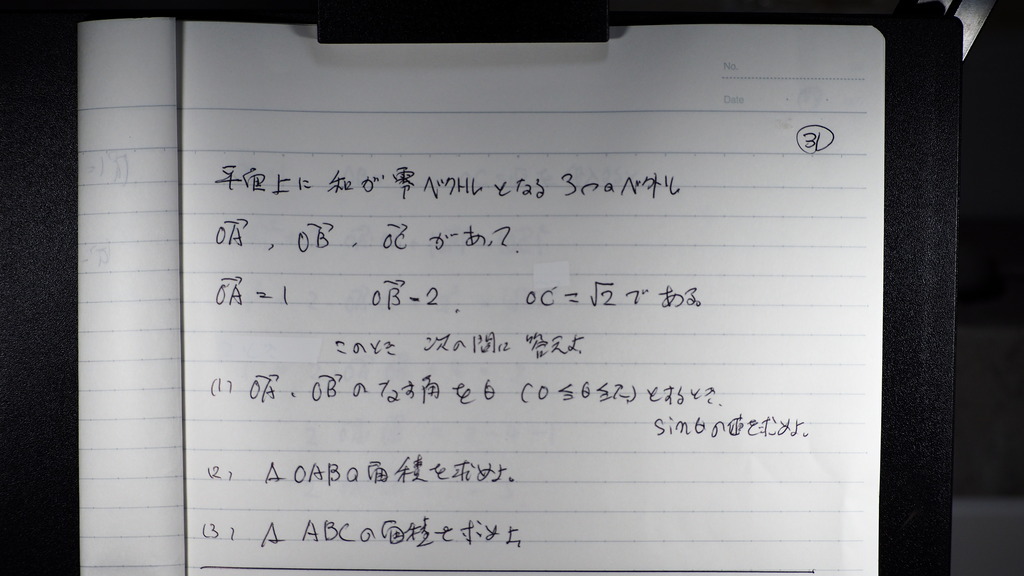 No.
Date
31
平面上に 和が 零ベクトル となる 3つのベクトル
OA→, OB→, OC→ があって.
OA→ = 1 OB→ = 2. OC = √2 である
このとき 次の問に 答えよ
(1) OA→, OB→ のなす角をθ (0≦θ≦π)とするとき.
sinθの値を求めよ.
(2) △OABの面積を求めよ.
(3) △ABCの面積を求めよ